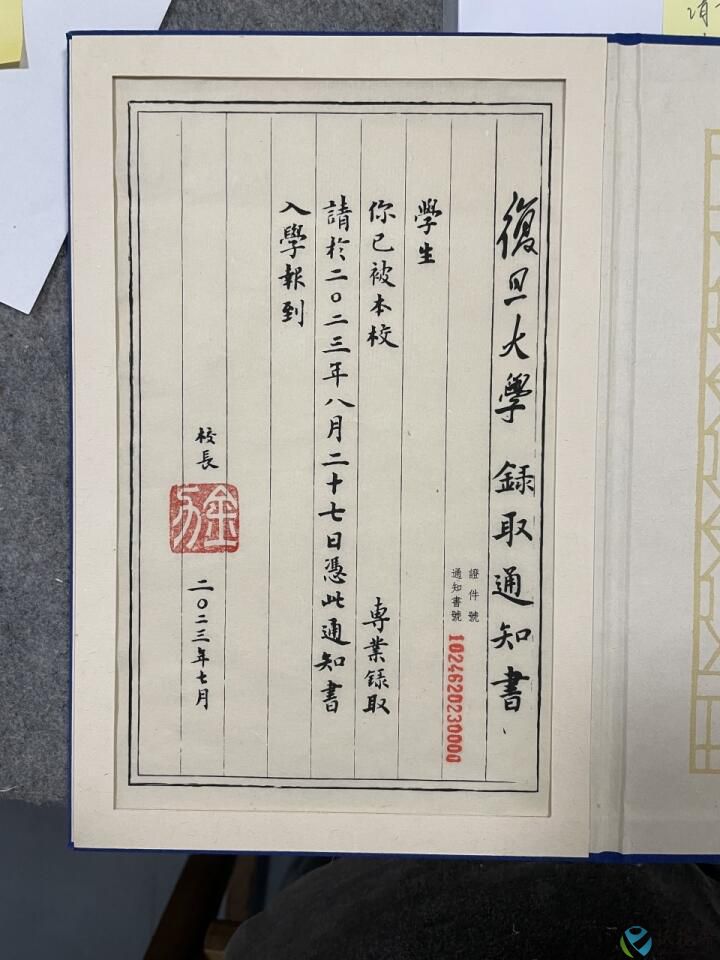 復旦大學 錄取通知書
證件號
通知書號 1024620230000
學生
你已被本校 專業錄取
請於二〇二三年八月二十七日憑此通知書
入學報到
校長
金力
二〇二三年七月